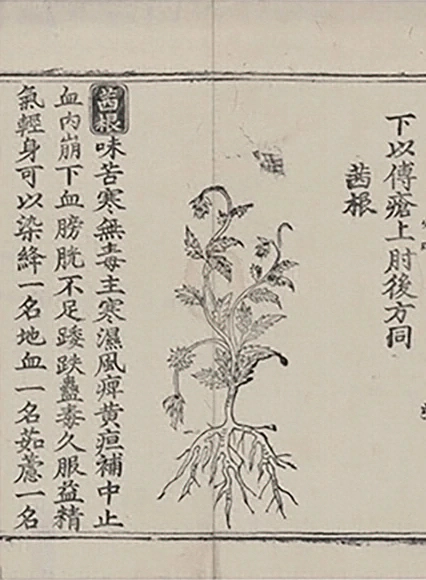 下以傅瘡上肘後方同
茜根
茜根味苦寒無毒主寒濕風痺黄疸補中止
血内崩下血膀胱不足踒跌蠱毒久服益精
氣輕身可以染絳一名地血一名茹藘一名